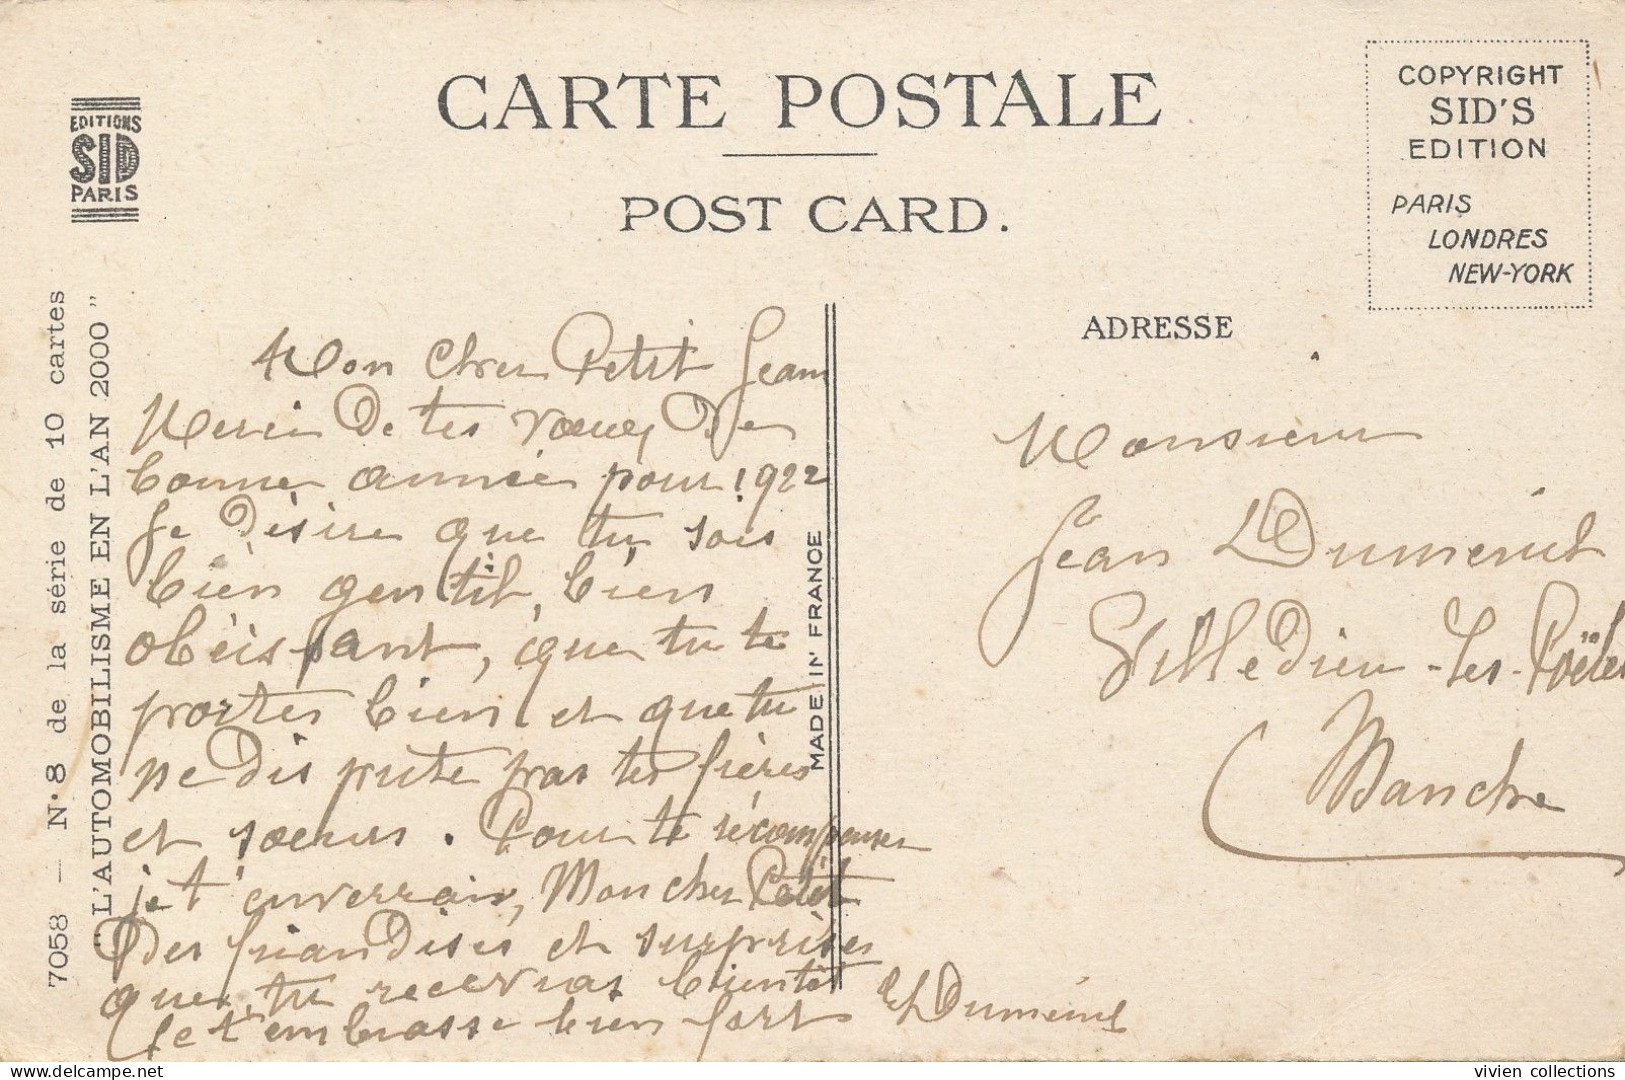 CARTE POSTALE
POST CARD.
EDITIONS
SID
PARIS
COPYRIGHT
SID'S
EDITION
PARIS
LONDRES
NEW-YORK
7058 — N° 8 de la série de 10 cartes
"L'AUTOMOBILISME EN L'AN 2000"
MADE IN FRANCE
ADRESSE
Mon Cher Petit Jean
Merci De tes vœux De
bonne année pour 1922
Je Désire que tu sois
bien gentil, bien
obéissant, que tu te
portes bien et que tu
ne disputes pas tes frères
et sœurs. Pour te récompenser
je t'enverrai, Mon cher Petit
Des friandises et surprises
que tu recevras bientôt
Je t'embrasse bien fort
Duménil
Monsieur
Jean Duménil
Villedieu-les-Poëles
Manche
vivien collections